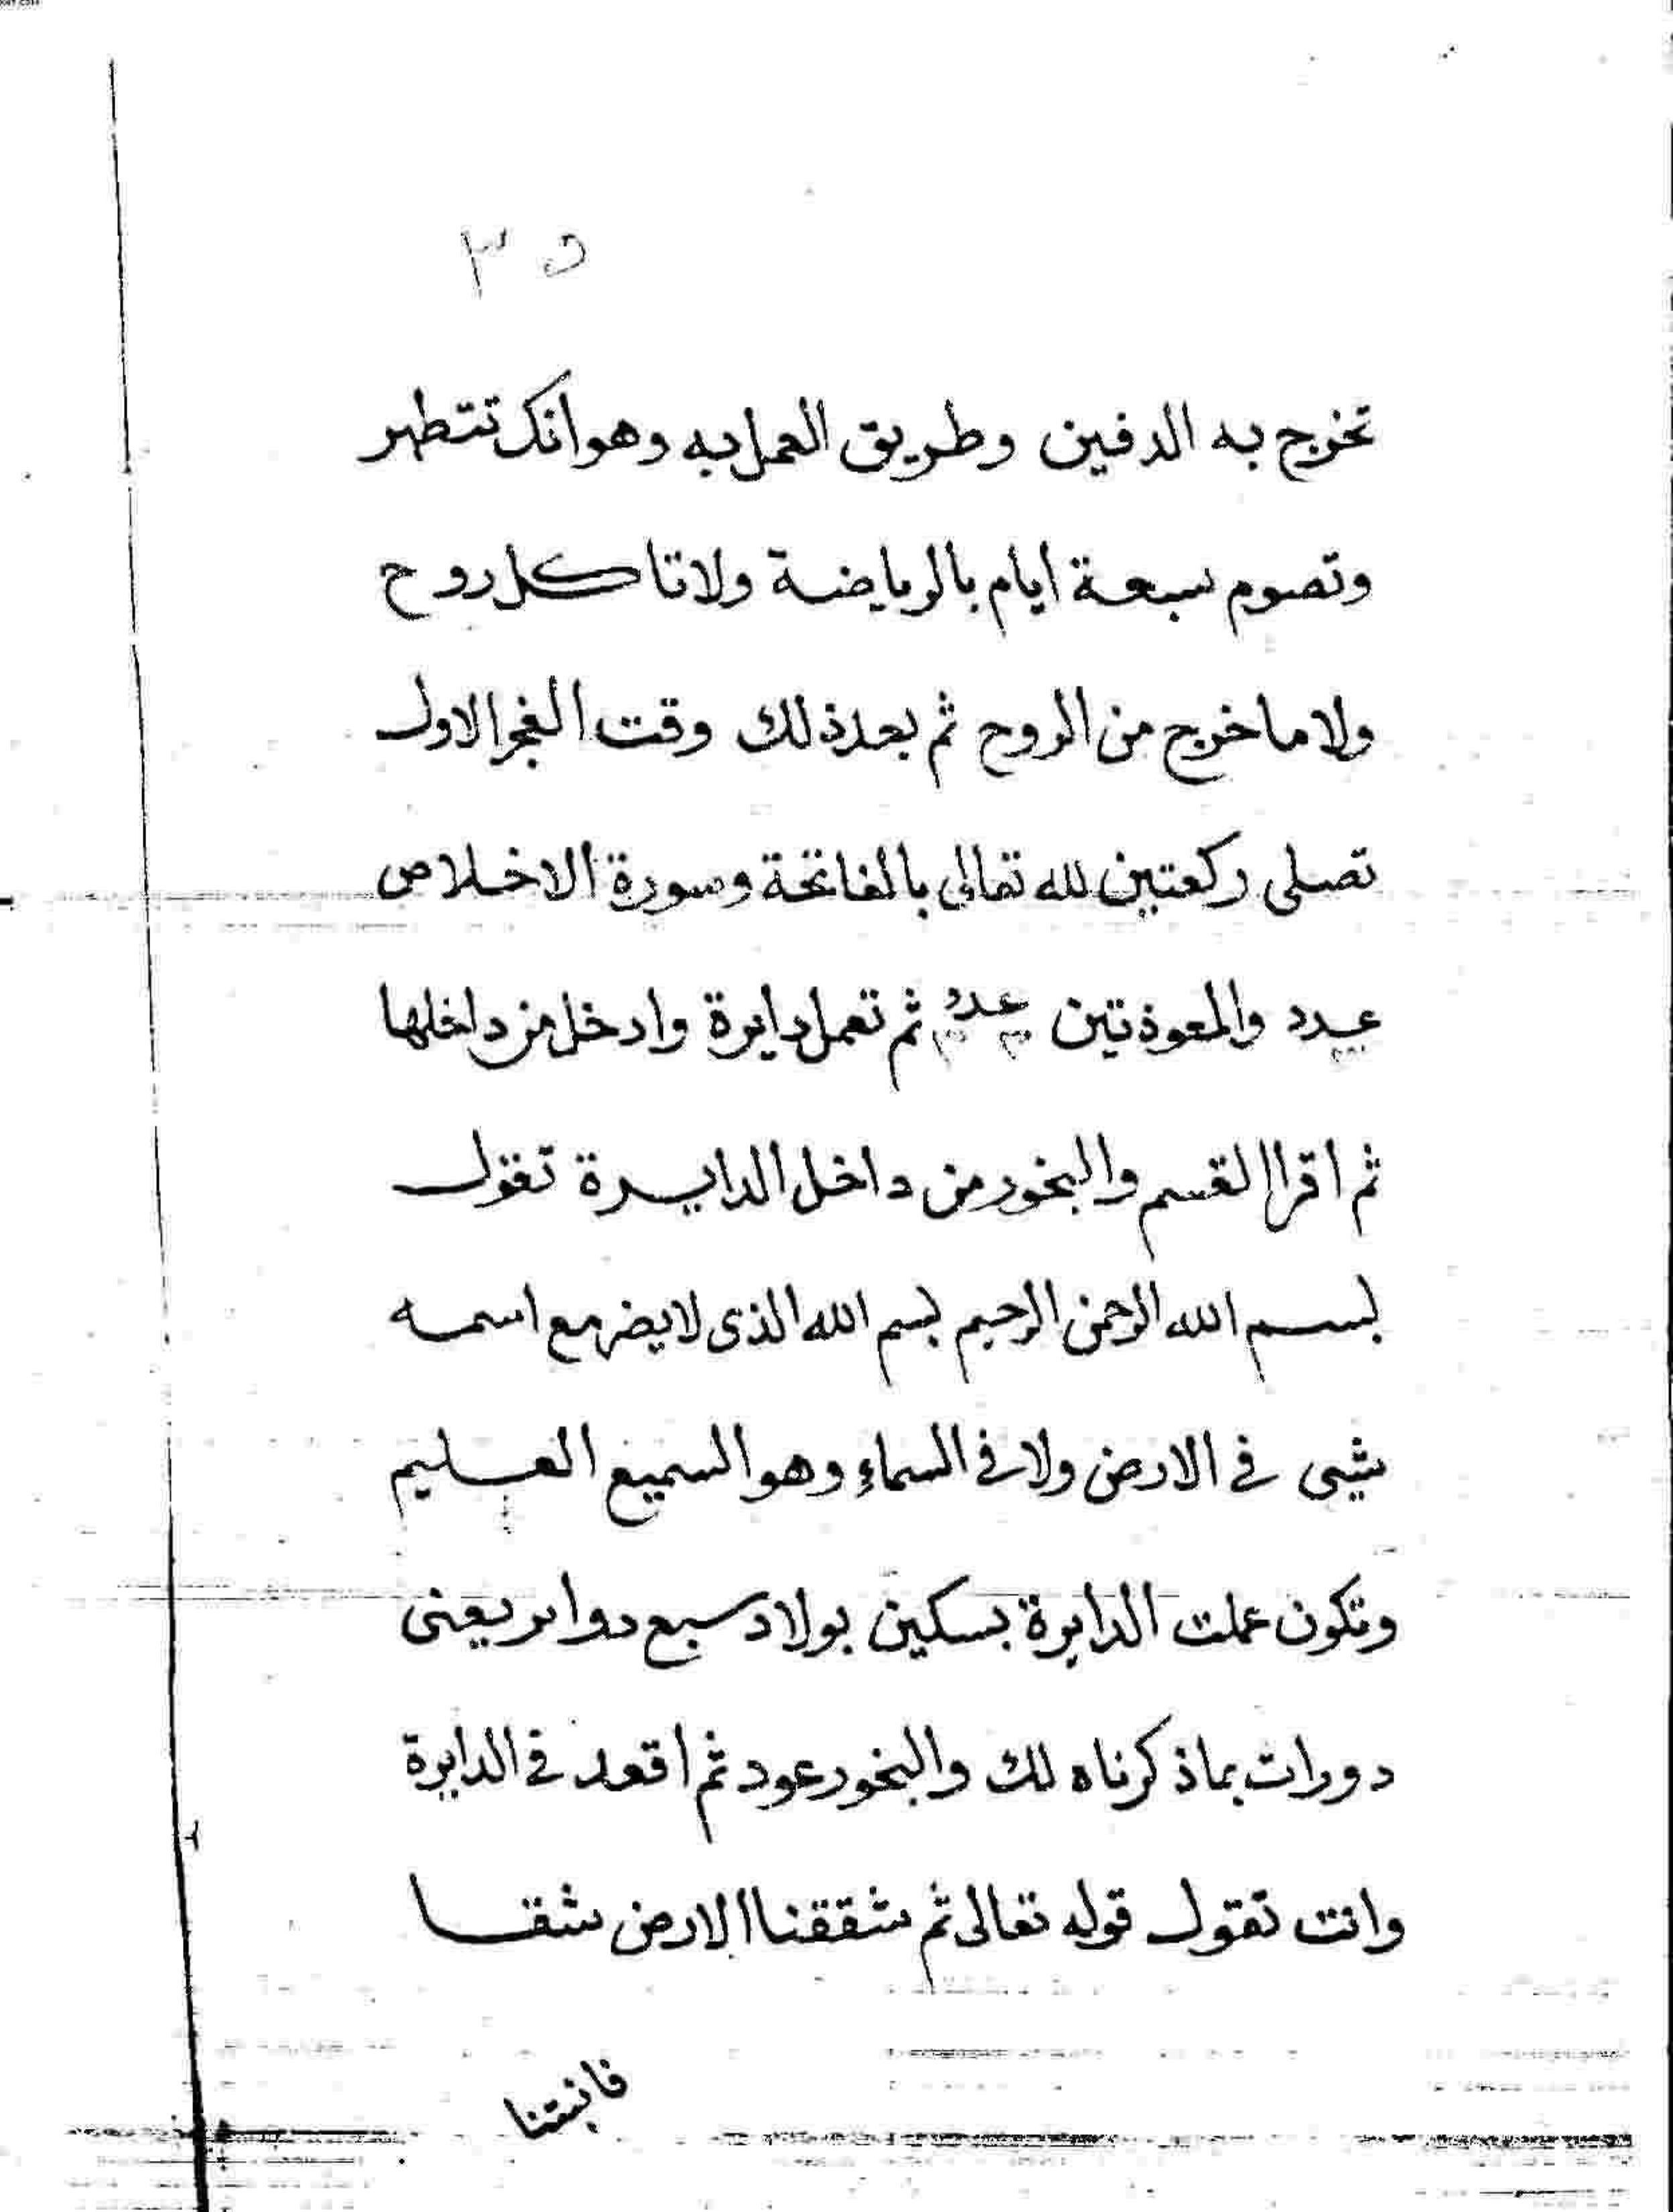 ٣٥
تخرج به الدفين وطريق العمل به وهو انك تتطهر
وتصوم سبعة ايام بالرياضة ولا تاكل روح
ولا ما خرج من الروح ثم بعد ذلك وقت الفجر الاول
تصلى ركعتين لله تعالى بالفاتحة وسورة الاخلاص
عدد والمعوذتين عدد ثم تعمل دايرة وادخل من داخلها
ثم اقرا القسم والبخور من داخل الدايرة تقول
بسم الله الرحمن الرحيم بسم الله الذى لا يضر مع اسمه
شيى فى الارض ولا فى السماء وهو السميع العليم
وتكون عملت الدايرة بسكين بولاد سبع دواير يعنى
دورات بما ذكرناه لك والبخور عود ثم اقعد فى الدايرة
وانت تقول قوله تعالى ثم شققنا الارض شقا
فانبتنا